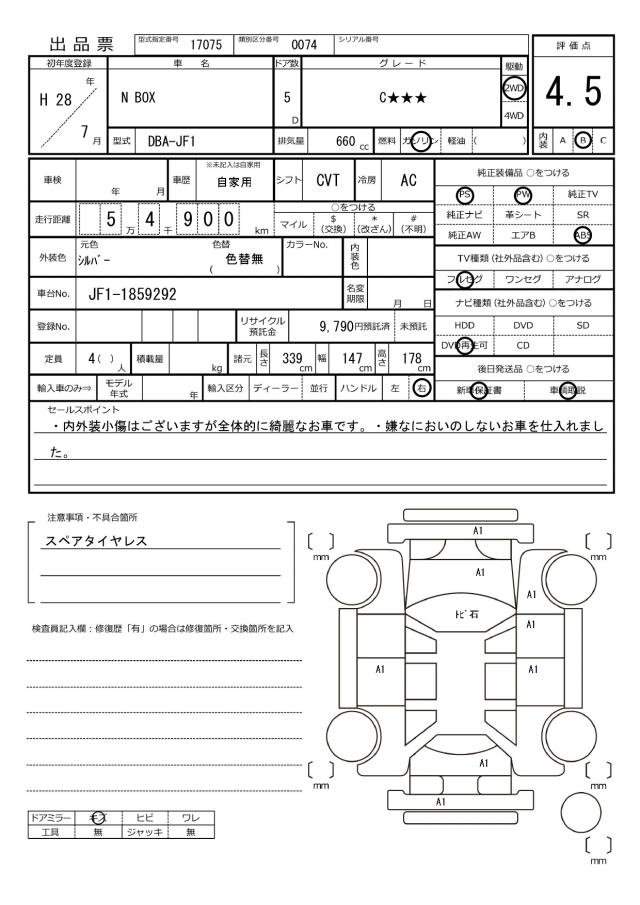 出品票 型式指定番号 17075 類別区分番号 0074 シリアル番号
初年度登録 車名 ドア数 グレード 駆動 評価点
H 28 年 7 月 N BOX 5 D C★★★ 2WD 4WD 4.5
型式 DBA-JF1 排気量 660 cc 燃料 ガソリン 軽油 ( ) 内装 A B C
車検 年 月 車歴 ※未記入は自家用 自家用 シフト CVT 冷房 AC
純正装備品 ○をつける
PS PW 純正TV
純正ナビ 革シート SR
純正AW エアB ABS
走行距離 5 万 4 千 9 0 0 km ○をつける
マイル $(交換) *(改ざん) #(不明)
外装色 元色 シルバー 色替 色替無 ( ) カラーNo. 内装色
TV種類(社外品含む) ○をつける
フルセグ ワンセグ アナログ
車台No. JF1-1859292 名変期限 月 日
ナビ種類(社外品含む) ○をつける
HDD DVD SD
DVD再生可 CD
登録No. リサイクル預託金 9,790円預託済 未預託
定員 4 ( ) 人 積載量 kg 諸元 長さ 339 cm 幅 147 cm 高さ 178 cm
後日発送品 ○をつける
新車保証書 車輌取説
輸入車のみ⇒ モデル年式 年 輸入区分 ディーラー 並行 ハンドル 左 右
セールスポイント
・内外装小傷はございますが全体的に綺麗なお車です。・嫌なにおいのしないお車を仕入れまし
た。
注意事項・不具合箇所
スペアタイヤレス
検査員記入欄：修復歴「有」の場合は修復箇所・交換箇所を記入
A1
mm
mm
A1
A1
トビ石
A1
A1
A1
A1
mm
mm
A1
mm
ドアミラー キズ ヒビ ワレ
工具 無 ジャッキ 無